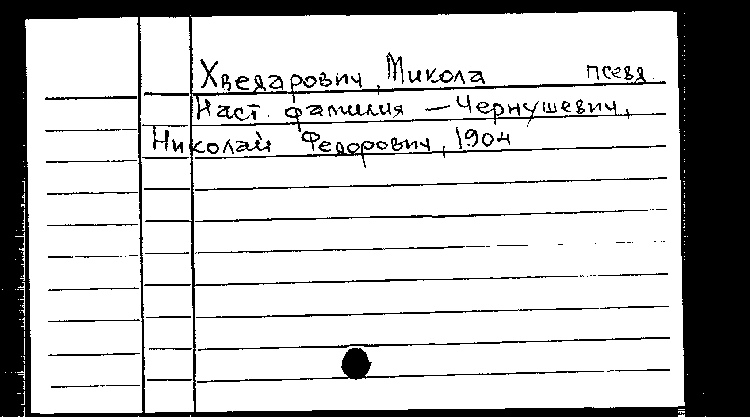 Хведарович, Микола псевд.
Наст. фамилия — Чернушевич,
Николай Федорович, 1904